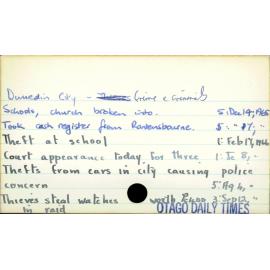 Dunedin City - Crime & Criminals
Schools, church broken into. 5: Dec 14, 1965
Took cash register from Ravensbourne. 5: " 17, "
Theft at school 1: Feb 17, 1966
Court appearance today for three 1: Je 8, "
Thefts from cars in city causing police
concern 5: Ag 4, "
Thieves steal watches worth £400 3: Sep 12, "
in raid
OTAGO DAILY TIMES